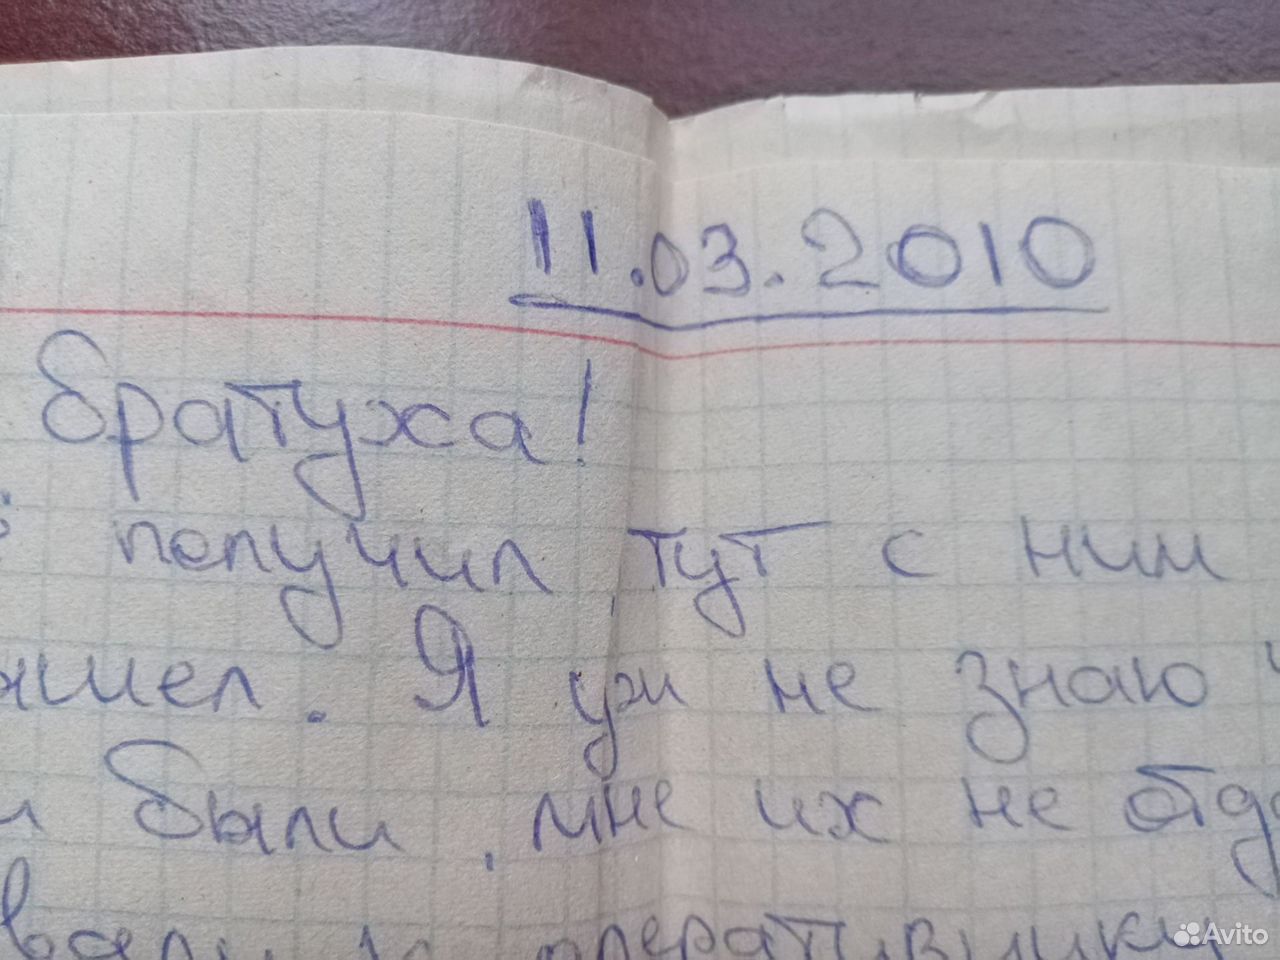 11.03.2010
братуха!
получил, тут с ним
ышел. Я уж не знаю
и были, мне их не отда
вали оперативники
Avito